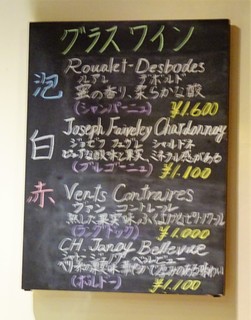 グラスワイン
泡 Roualet-Desbodes
ルアレ デボルド
蜜の香り、柔らかな酸
(シャンパーニュ) ¥1.600
白 Joseph Faiveley Chardonnay
ジョゼフ フェヴレ シャルドネ
果実 ミネラル感がある
(ブルゴーニュ) ¥1.100
赤 Vents Contraires
ヴァン コントレール
熟した果実味
(ラングドック) ¥1.000
CH. Janoy Bellevue
シャトー ジャノワ ベルビュー
味わい
(ボルドー) ¥1.100